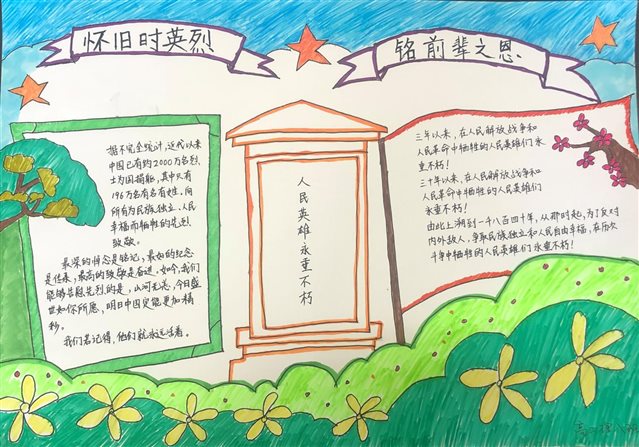 怀旧时英烈
铭前辈之恩
据不完全统计,近代以来
中国已有约2000万名烈
士为国捐躯,其中只有
196万名有名有姓,向
所有为民族独立、人民
幸福而牺牲的先烈
致敬。
最深的悼念是铭记,最好的纪念
是传承,最高的致敬是奋进。如今,我们
能够告慰先烈的是,山河无恙,今日盛
世如你所愿,明日中国定能更加精
彩。
我们若记得,他们就永远活着。
人民英雄永垂不朽
三年以来,在人民解放战争和
人民革命中牺牲的人民英雄们永
垂不朽!
三十年以来,在人民解放战争和
人民革命中牺牲的人民英雄们
永垂不朽!
由此上溯到一千八百四十年,从那时起,为了反对
内外敌人,争取民族独立和人民自由幸福,在历次
斗争中牺牲的人民英雄们永垂不朽!